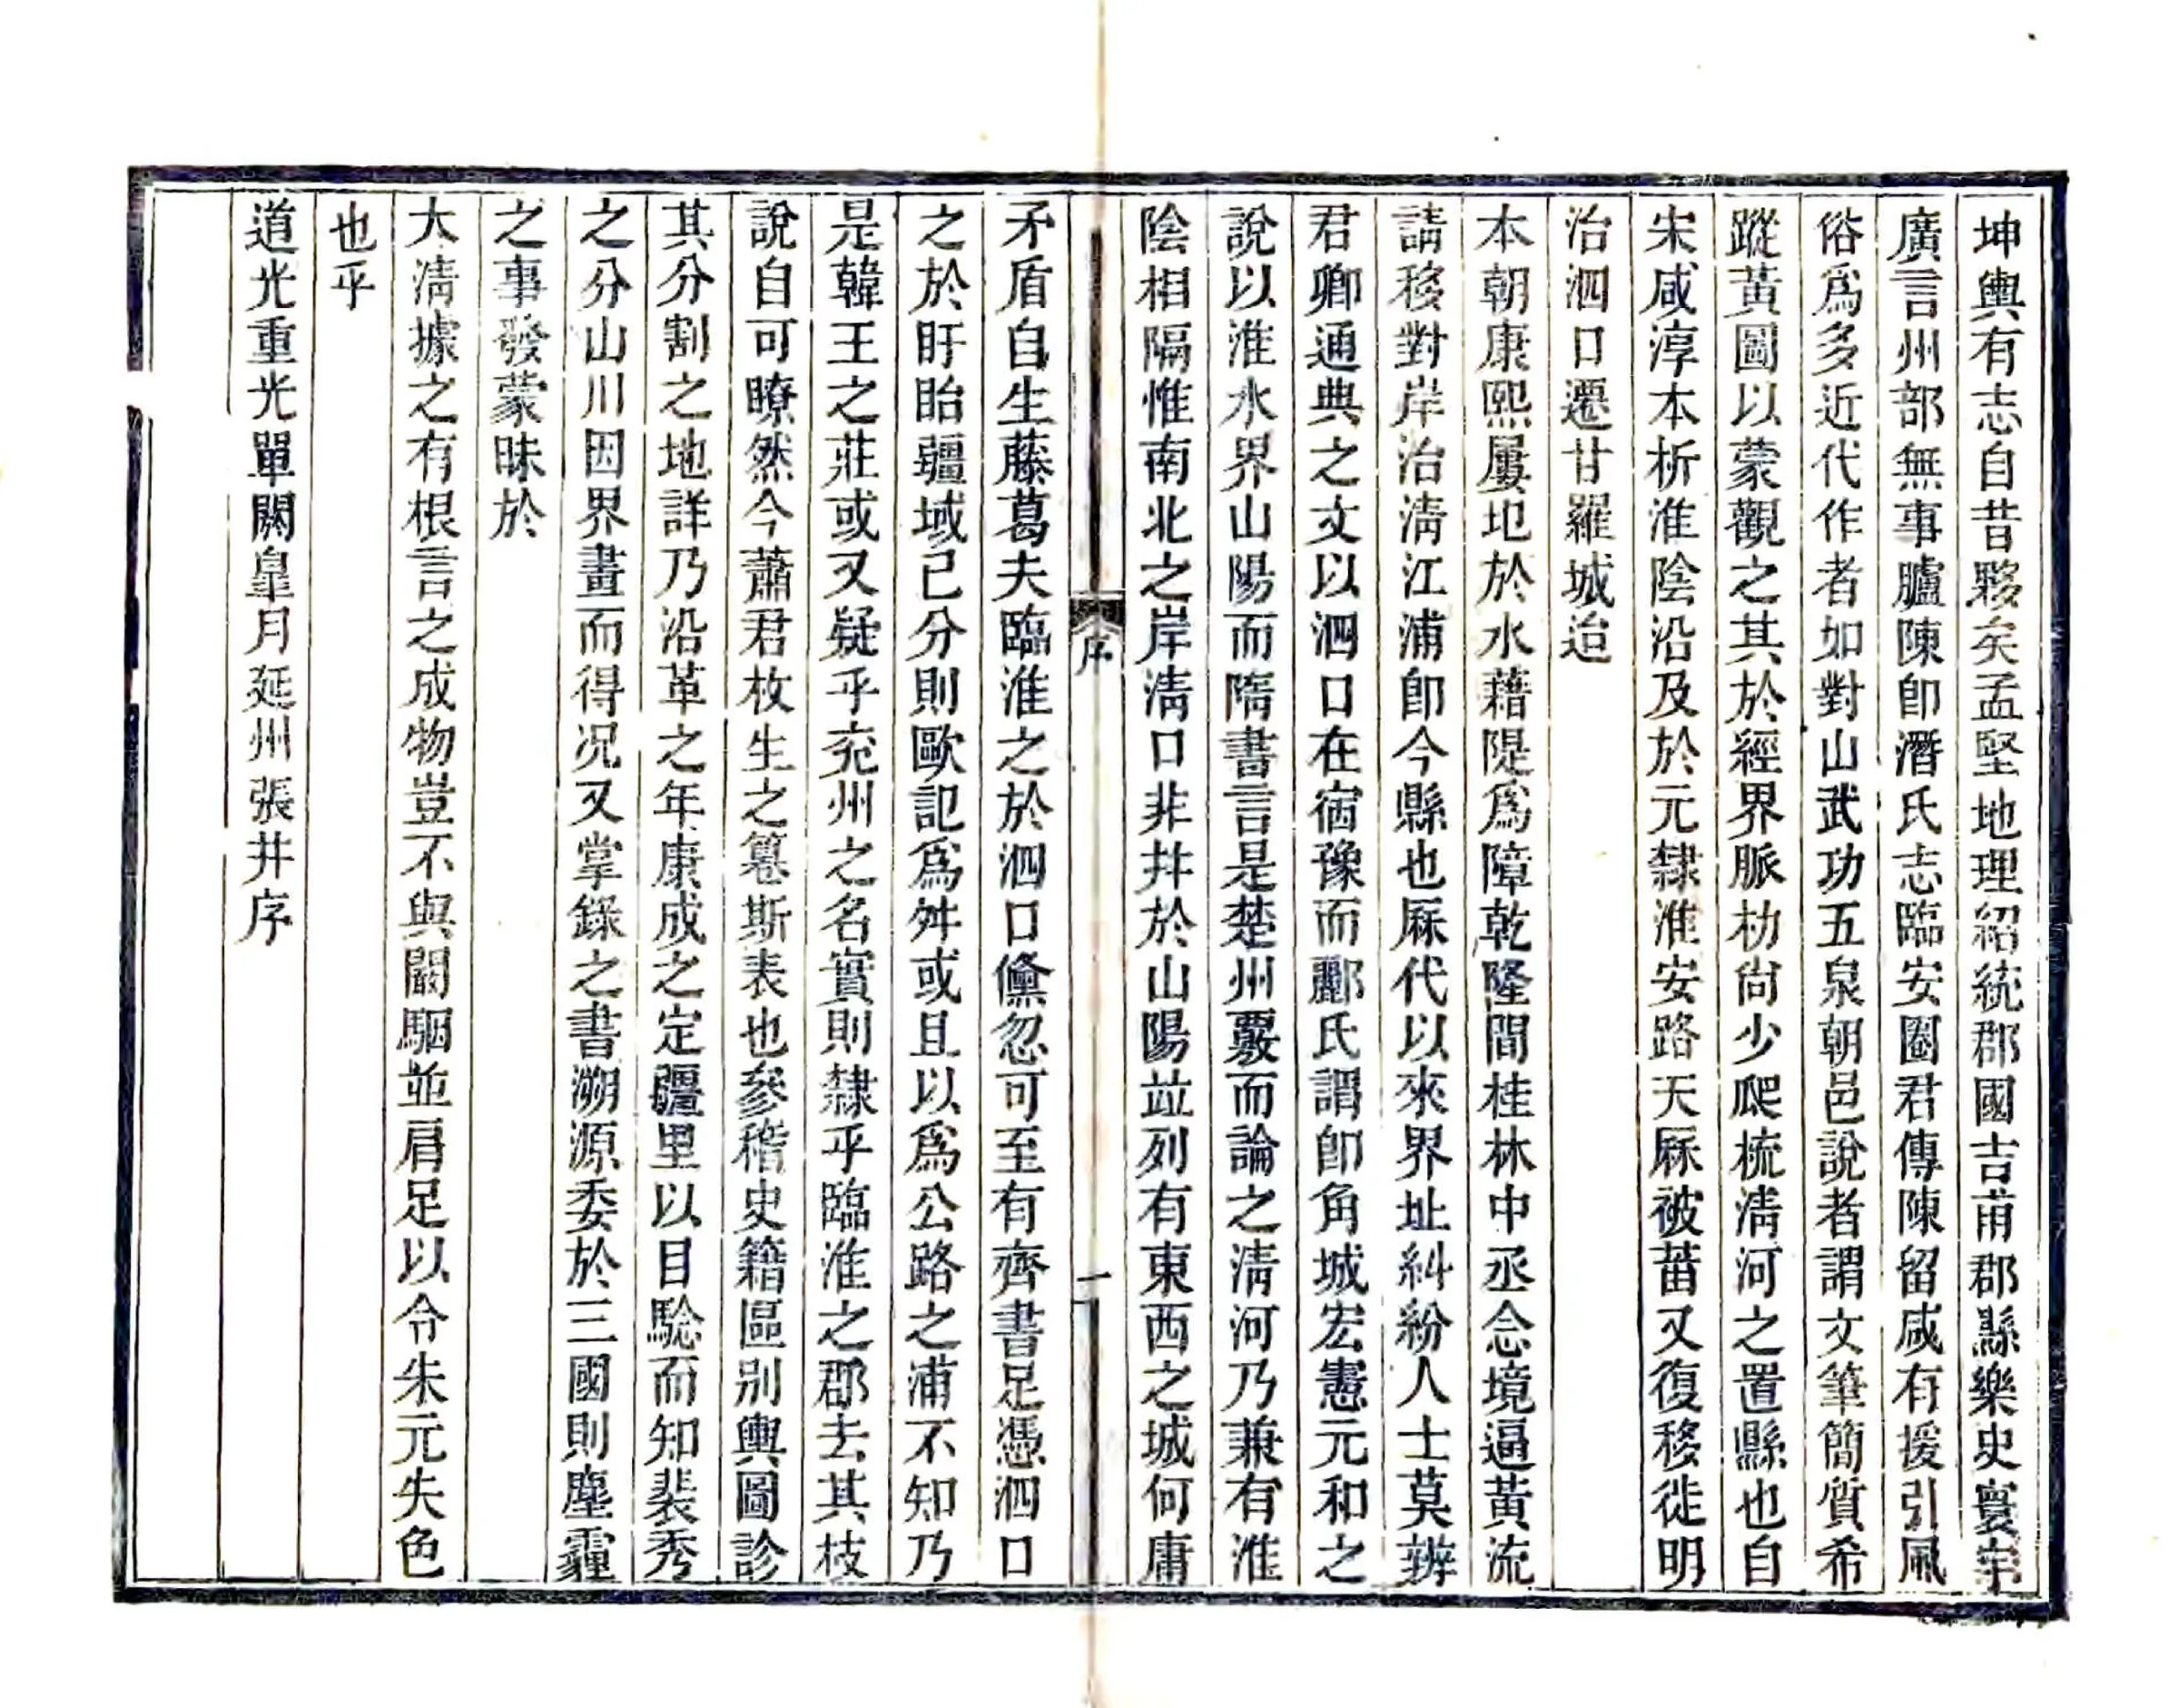 坤輿有志自昔夥矣孟堅地理紹統郡國吉甫郡縣樂史寰宇
廣言州部無事臚陳卽潛氏志臨安圈君傳陳留咸有援引風
俗爲多近代作者如對山武功五泉朝邑說者謂文筆簡質希
蹤黃圖以蒙觀之其於經界脈朸尙少爬梳淸河之置縣也自
宋咸淳本析淮陰沿及於元隸淮安路天厤被菑又復移徙明
治泗口遷甘羅城迨
本朝康熙屢圯於水藉隄爲障乾隆間桂林中丞念境逼黃流
請移對岸治淸江浦卽今縣也厤代以來界址糾紛人士莫辨
君卿通典之文以泗口在宿豫而酈氏謂卽角城宏憲元和之
說以淮水界山陽而隋書言是楚州覈而論之淸河乃兼有淮
陰相隔惟南北之岸淸口非幷於山陽竝列有東西之城何庸
序
一
矛盾自生藤葛夫臨淮之於泗口儵忽可至有齊書足憑泗口
之於盱眙疆域已分則歐記爲舛或且以爲公路之浦不知乃
是韓王之莊或又疑乎兖州之名實則隸乎臨淮之郡去其枝
說自可瞭然今蕭君枚生之篹斯表也參稽史籍區别輿圖診
其分割之地詳乃沿革之年康成之定疆里以目驗而知裴秀
之分山川因界畫而得況又掌錄之書溯源委於三國則塵霾
之事發蒙昧於
大淸據之有根言之成物豈不與闞駰並肩足以令朱元失色
也乎
道光重光單閼皐月延州張井序